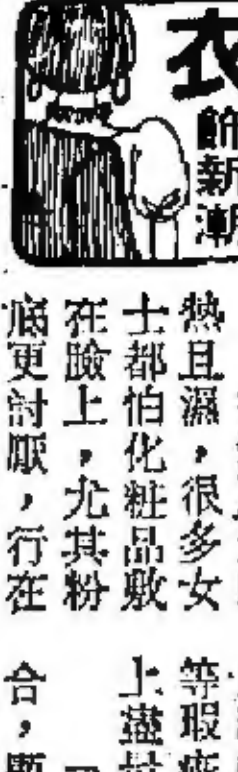 衣
飾新潮
熱且濕，很多女
士都怕化粧品敷
在臉上，尤其粉
底更討厭，行在
等瑕疵
上盡
合，